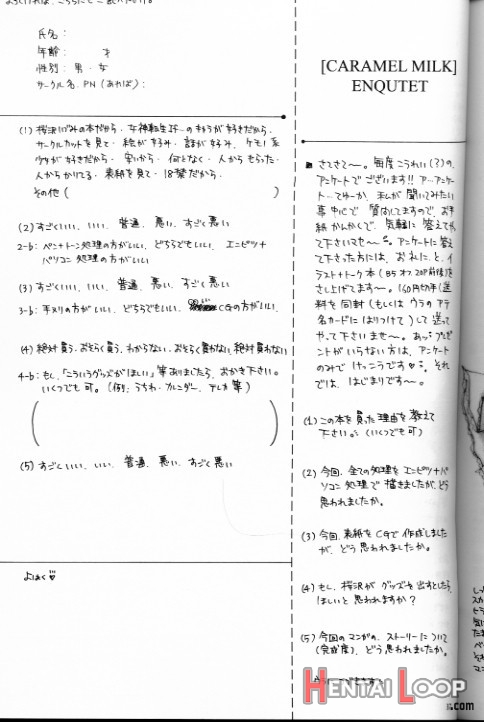 氏名:
年齢: 才
性別: 男・女
サークル名.PN(あれば):
(1) 桜沢いづみの本だから・女神転生if…のキョウが好きだから・
サークルカットを見て・絵が好み・話が好み・ケモノ系
少女が好きだから・安いから・何となく・人からもらった・
人からかりてる・表紙を見て・18禁だから・
その他(
(2) すごくいい、いい、普通、悪い、すごく悪い
2-b: ペン+トーン処理の方がいい、どちらでもいい、エンピツ+
パソコン処理の方がいい
(3) すごくいい、いい、普通、悪い、すごく悪い
3-b: 手ヌリの方がいい、どちらでもいい、CGの方がいい、
(4) 絶対買う、おそらく買う、わからない、おそらく買わない、絶対買わない
4-b: もし、「こういうグッズがほしい」等ありましたら、おかき下さい。
いくつでも可。(例:うちわ・カレンダー、テレカ等)
(5) すごくいい、いい、普通、悪い、すごく悪い
よはく♡
[CARAMEL MILK]
ENQUTET
さてさて〜。毎度こうれい(?)の、
アンケートでございます!!ア…アンケー
ト…てゆーか、私が聞いてみたい
事中心で質問してますので、お手
紙かんかくで、気軽に答えてやっ
て下さいませ〜。アンケートに答え
て下さった方には、お礼に、と、イ
ラスト+トーク本(B5オフ20P前後)を
さし上げてます〜。160円切手(送
料を同封(もしくはウラのアテ
名カードにはりつけて)して送って
やって下さいませ〜。あっ…プレゼ
ントがいらない方は、アンケート
のみでけっこうです♡。それ
では、はじまりです〜。
(1) この本を買った理由を教えて
下さい。(いくつでも可)
(2) 今回、全ての処理をエンピツ+パ
ソコン処理で描きましたが、どう
思われましたか。
(3) 今回、表紙をCGで作成しました
が、どう思われましたか。
(4) もし、桜沢がグッズを出すとしたら、
ほしいと思われますか?
(5) 今回のマンガの、ストーリーについて
(完成度)、どう思われましたか。
HENTAI LOOP
.com